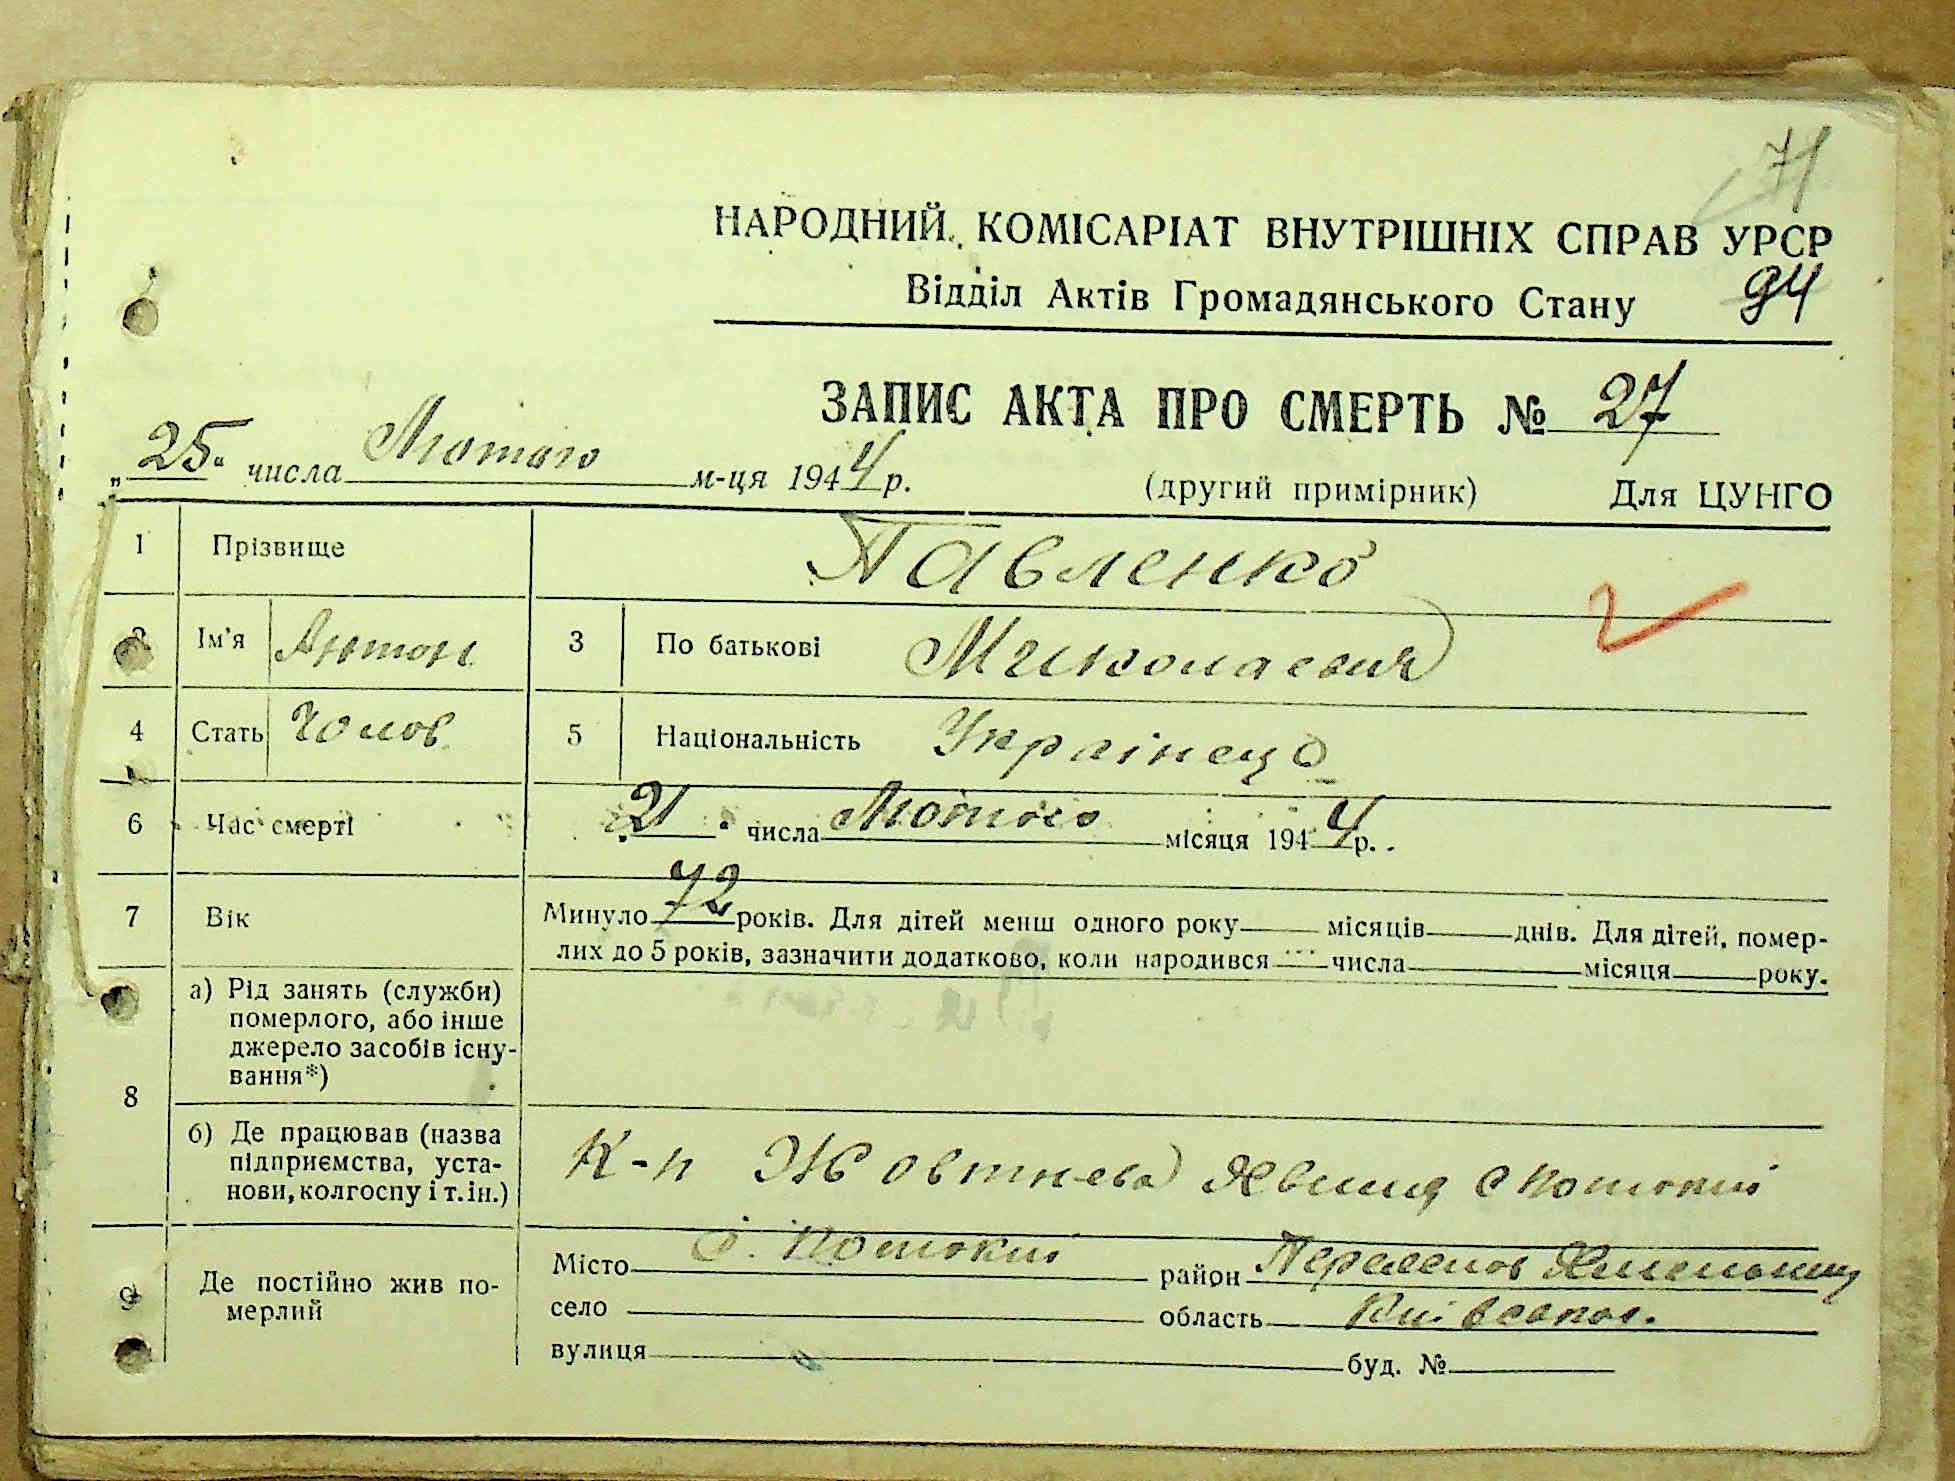 71
НАРОДНИЙ КОМІСАРІАТ ВНУТРІШНІХ СПРАВ УРСР
Відділ Актів Громадянського Стану 94
ЗАПИС АКТА ПРО СМЕРТЬ № 27
„25" числа Лютого м-ця 1944 р. (другий примірник) Для ЦУНГО
1 Прізвище Павленко
2 Ім'я Антон 3 По батькові Миколаевич
4 Стать Чолов 5 Національність Украінець
6 Час смерті „21" числа Лютого місяця 1944 р.
7 Вік Минуло 72 років. Для дітей менш одного року місяців днів. Для дітей, помер-
лих до 5 років, зазначити додатково, коли народився числа місяця року.
8 а) Рід занять (служби)
померлого, або інше
джерело засобів існу-
вання*)
б) Де працював (назва
підприємства, уста-
нови, колгоспу і т. ін.)
К-п Жовтнева с
9 Де постійно жив по-
мерлий
Місто с. район
село область
вулиця буд. №